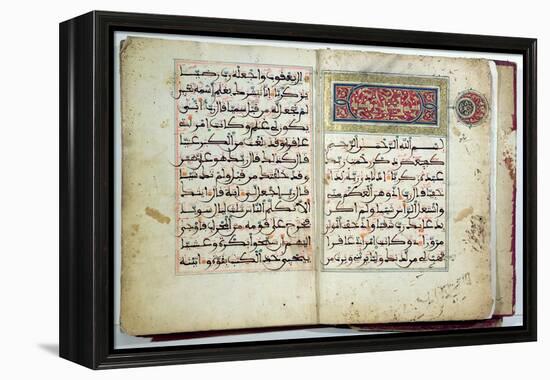 بسم الله الرحمن الرحيم
كهيعص ذكر رحمت ربك عبده
زكريا إذ نادى ربه نداء
خفيا قال رب إني وهن العظم مني
واشتعل الرأس شيبا ولم أكن
بدعائك رب شقيا وإني خفت الموالي
من وراءي وكانت امرأتي عاقرا
فهب لي من لدنك وليا يرثني ويرث من
ءال يعقوب واجعله رب رضيا
يزكريا إنا نبشرك بغلم اسمه يحيى
لم نجعل له من قبل سميا قال رب أنى
يكون لي غلم وكانت امرأتي
عاقرا وقد بلغت من الكبر عتيا
قال كذلك قال ربك هو علي هين
وقد خلقتك من قبل ولم تك
شيئا قال رب اجعل لي ءاية قال ءايتك
ألا تكلم الناس ثلث ليال سويا
فخرج على قومه من المحراب فأوحى
إليهم أن سبحوا بكرة وعشيا
ييحيى خذ الكتب بقوة وءاتينه